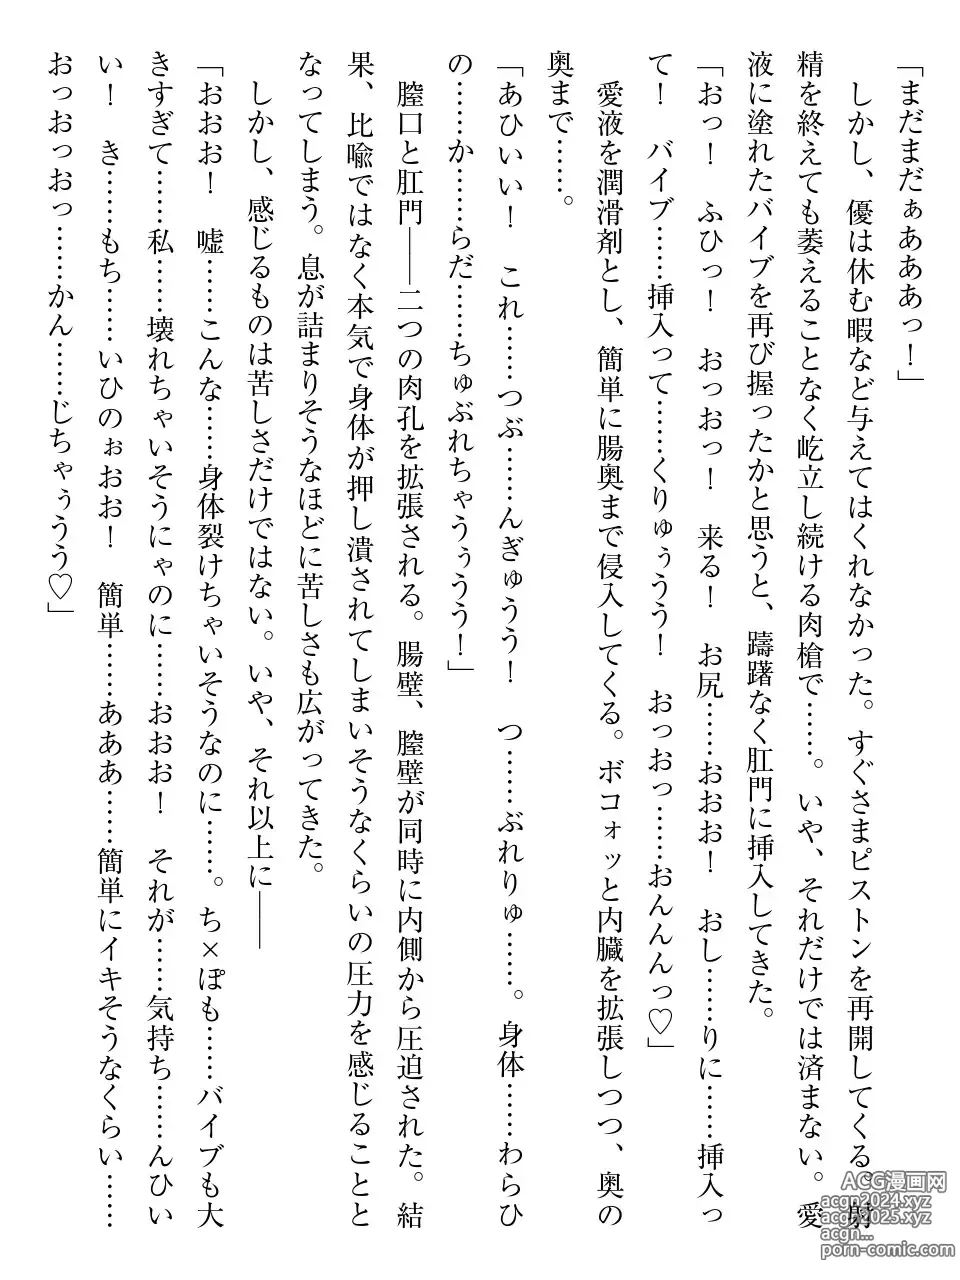 「まだまだぁあああっ！」
　しかし、優は休む暇など与えてはくれなかった。すぐさまピストンを再開してくる。射
精を終えても萎えることなく屹立し続ける肉槍で……。いや、それだけでは済まない。愛
液に塗れたバイブを再び握ったかと思うと、躊躇なく肛門に挿入してきた。
「おっ！　ふひっ！　おっおっ！　来る！　お尻……おおお！　おし……りに……挿入っ
て！　バイブ……挿入って……くりゅぅうう！　おっおっ……おんんんっ♡」
　愛液を潤滑剤とし、簡単に腸奥まで侵入してくる。ボコォッと内臓を拡張しつつ、奥の
奥まで……。
「あひいい！　これ……つぶ……んぎゅうう！　つ……ぶれりゅ……。身体……わらひ
の……か……らだ……ちゅぶれちゃうぅうう！」
　膣口と肛門――二つの肉孔を拡張される。腸壁、膣壁が同時に内側から圧迫された。結
果、比喩ではなく本気で身体が押し潰されてしまいそうなくらいの圧力を感じることと
なってしまう。息が詰まりそうなほどに苦しさも広がってきた。
　しかし、感じるものは苦しさだけではない。いや、それ以上に――
「おおお！　嘘……こんな……身体裂けちゃいそうなのに……。ち×ぽも……バイブも大
きすぎて……私……壊れちゃいそうにゃのに……おおお！　それが……気持ち……んひい
い！　き……もち……いひのぉおお！　簡単……あああ……簡単にイキそうなくらい……
おっおっおっ……かん……じちゃぅうう♡」
ACG漫画网
acgn2024.xyz
acgn2025.xyz
acgn...
porn-comic.com